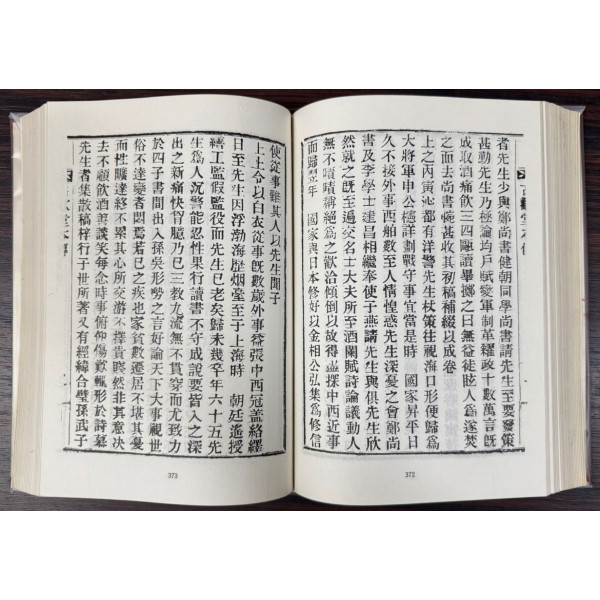 者先生少與鄭尚書健朝同學尚書請先生至要贅策
甚勤先生乃極論均戶賦變軍制革糴政十數萬言旣
成取酒痛飮三四甌讀畢擲之曰無益徒賊人爲遂焚
之而去尚書惋甚收其初稿補綴以成卷
上之丙寅沁都有洋警先生杖策往視海口形便歸爲
大將軍申公櫶詳劃戰守事宜當是時 國家昇平日
久不接外事西舶數至人情惶惑先生深憂之會鄭尚
書及李學士建昌相繼奉使于燕請先生與俱先生欣
然就之旣至遍交名士大夫所至酒闌賦詩論議動人
無不嘖嘖稱絶爲之歡洽傾倒以故得盡知中西近事
而歸翌年 國家與日本修好以金相公弘集爲修信
372
使從事難其人以先生聞于
上上令以白衣從事旣數歲外事益張中西冠盖絡繹
日至先生因浮渤海歷烟堂至于上海時 朝廷遙授
繕工監假監役而先生已老矣歸未幾卒年六十五先
生爲人沉警能忍性果行讀書不守成說要皆入之深
出之新痛快胷臆乃已三敎九流無不貫穿而尤致力
於四子書間出入孫吳形勢之言好論天下大事視世
俗不達變者悶焉若已之疾也家貧數遷居不堪其憂
而性曠達終不累其心所交游不擇貴賤然非其意决
去不顧飮酒善談笑每念時事俯仰傷歎輒形於詩慕
先生者集散稿梓行于世所著又有經緯合璧孫武子
373